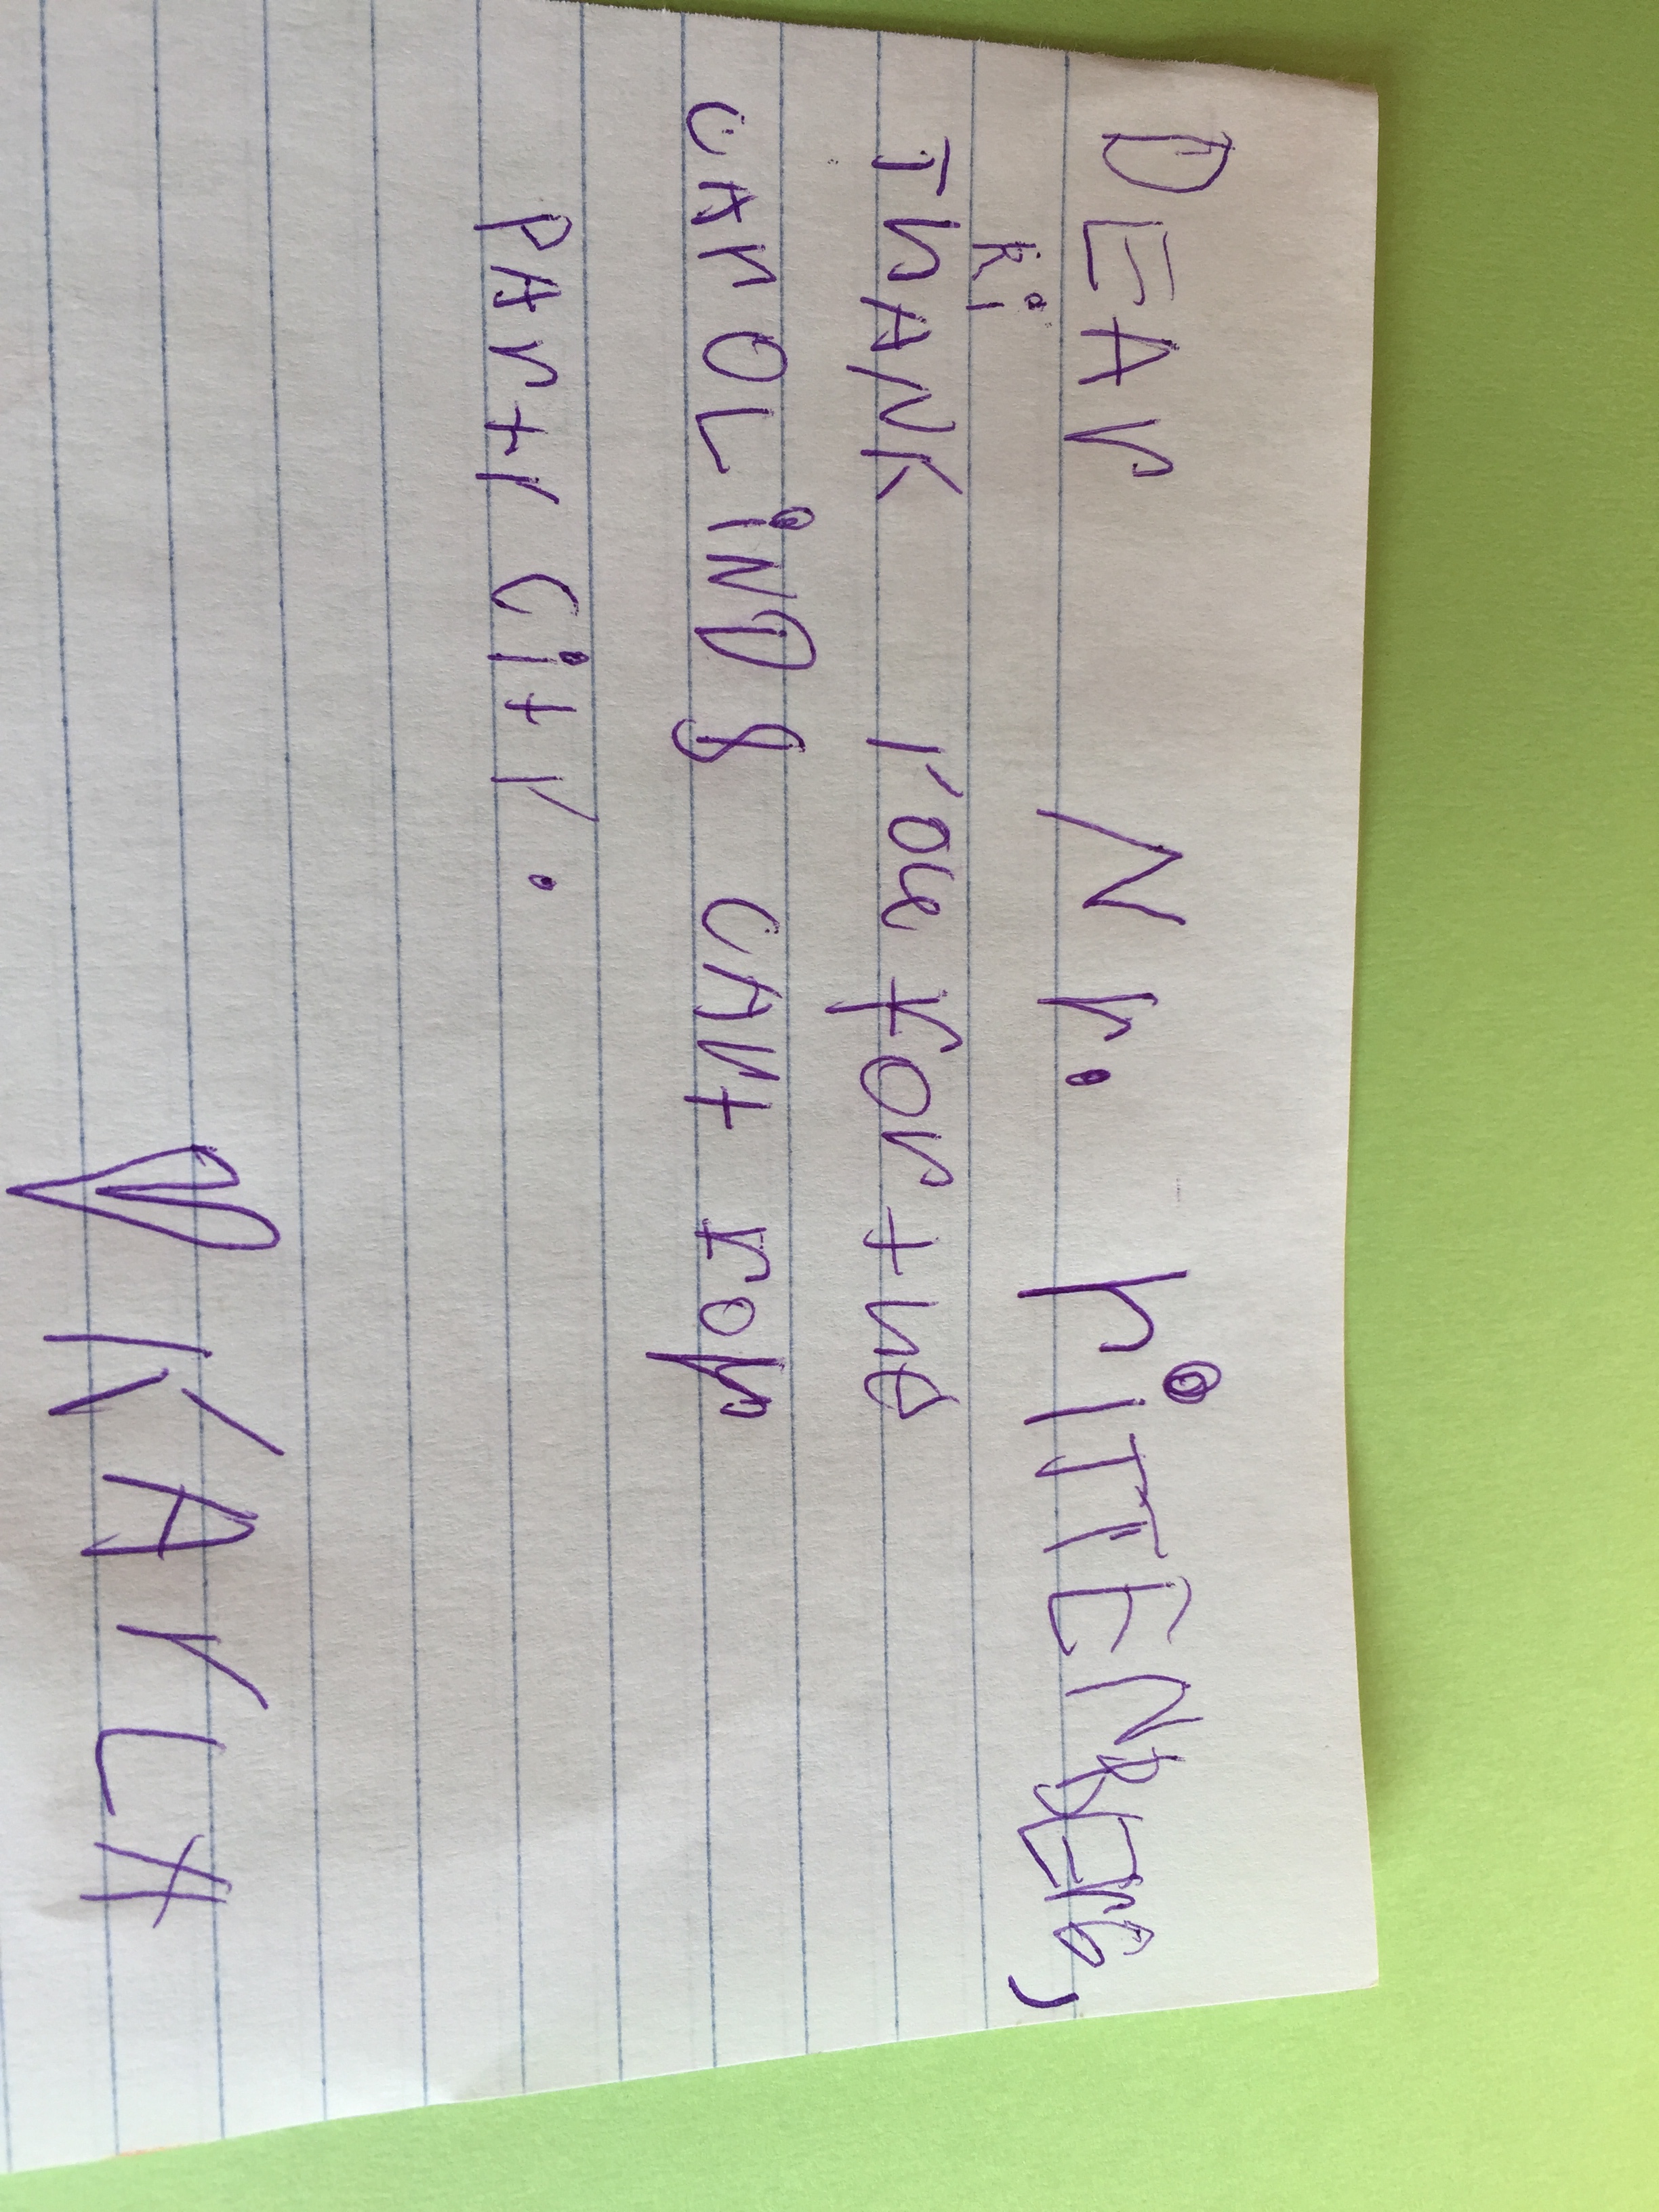 DEAr Mr. hiTTENBErG,
Ki
ThANK you For the
CArOLING CArt From
PArty City.
KAYLA